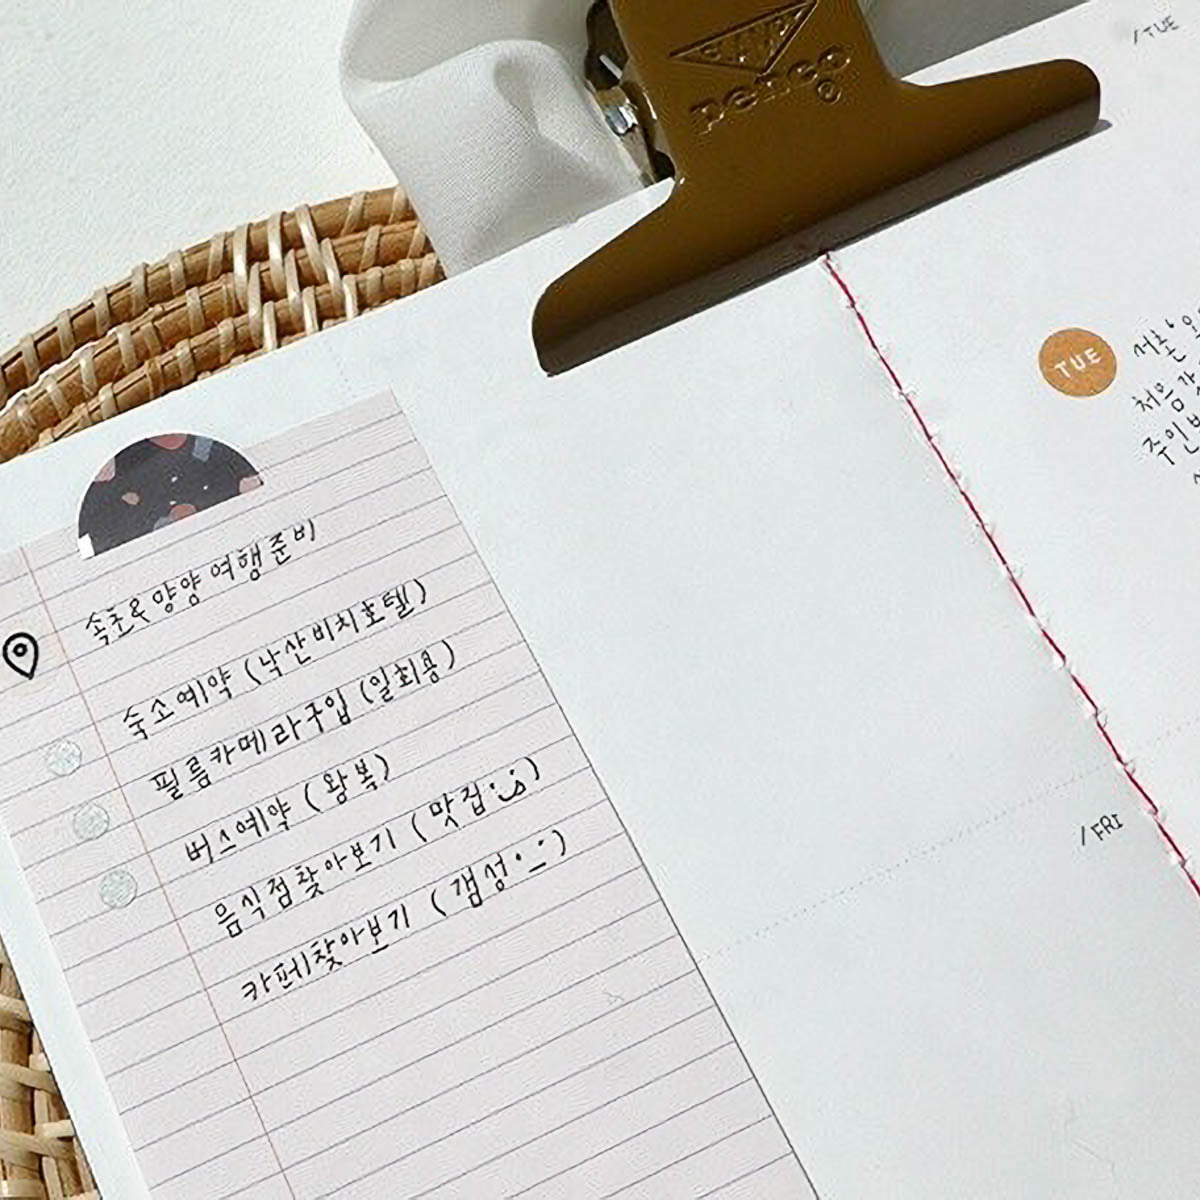 penco
/TUE
속초&양양 여행준비
숙소예약 (낙산비치호텔)
필름카메라구입 (일회용)
버스예약 (왕복)
음식점찾아보기 (맛집)
카페찾아보기 (갬성)
TUE
처음
/FRI